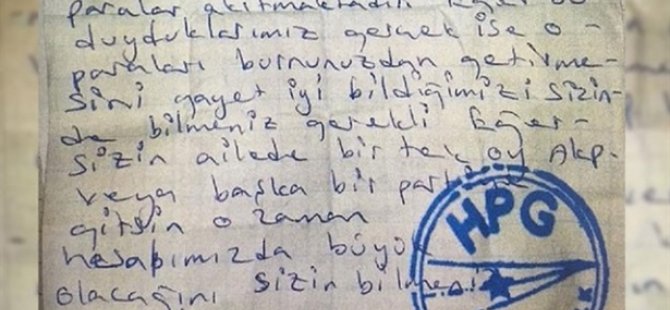 paralar akıtmaktadır Eğer bu
duyduklarımız gerçek ise o-
paraları burnunuzdan getirme-
sini gayet iyi bildiğimizi sizin-
de bilmeniz gerekli Eğer-
sizin ailede bir tek oy Akp-
veya başka bir partiye
gitsin o zaman
hesabımızda büyük
olacağını sizin bilmeniz
HPG